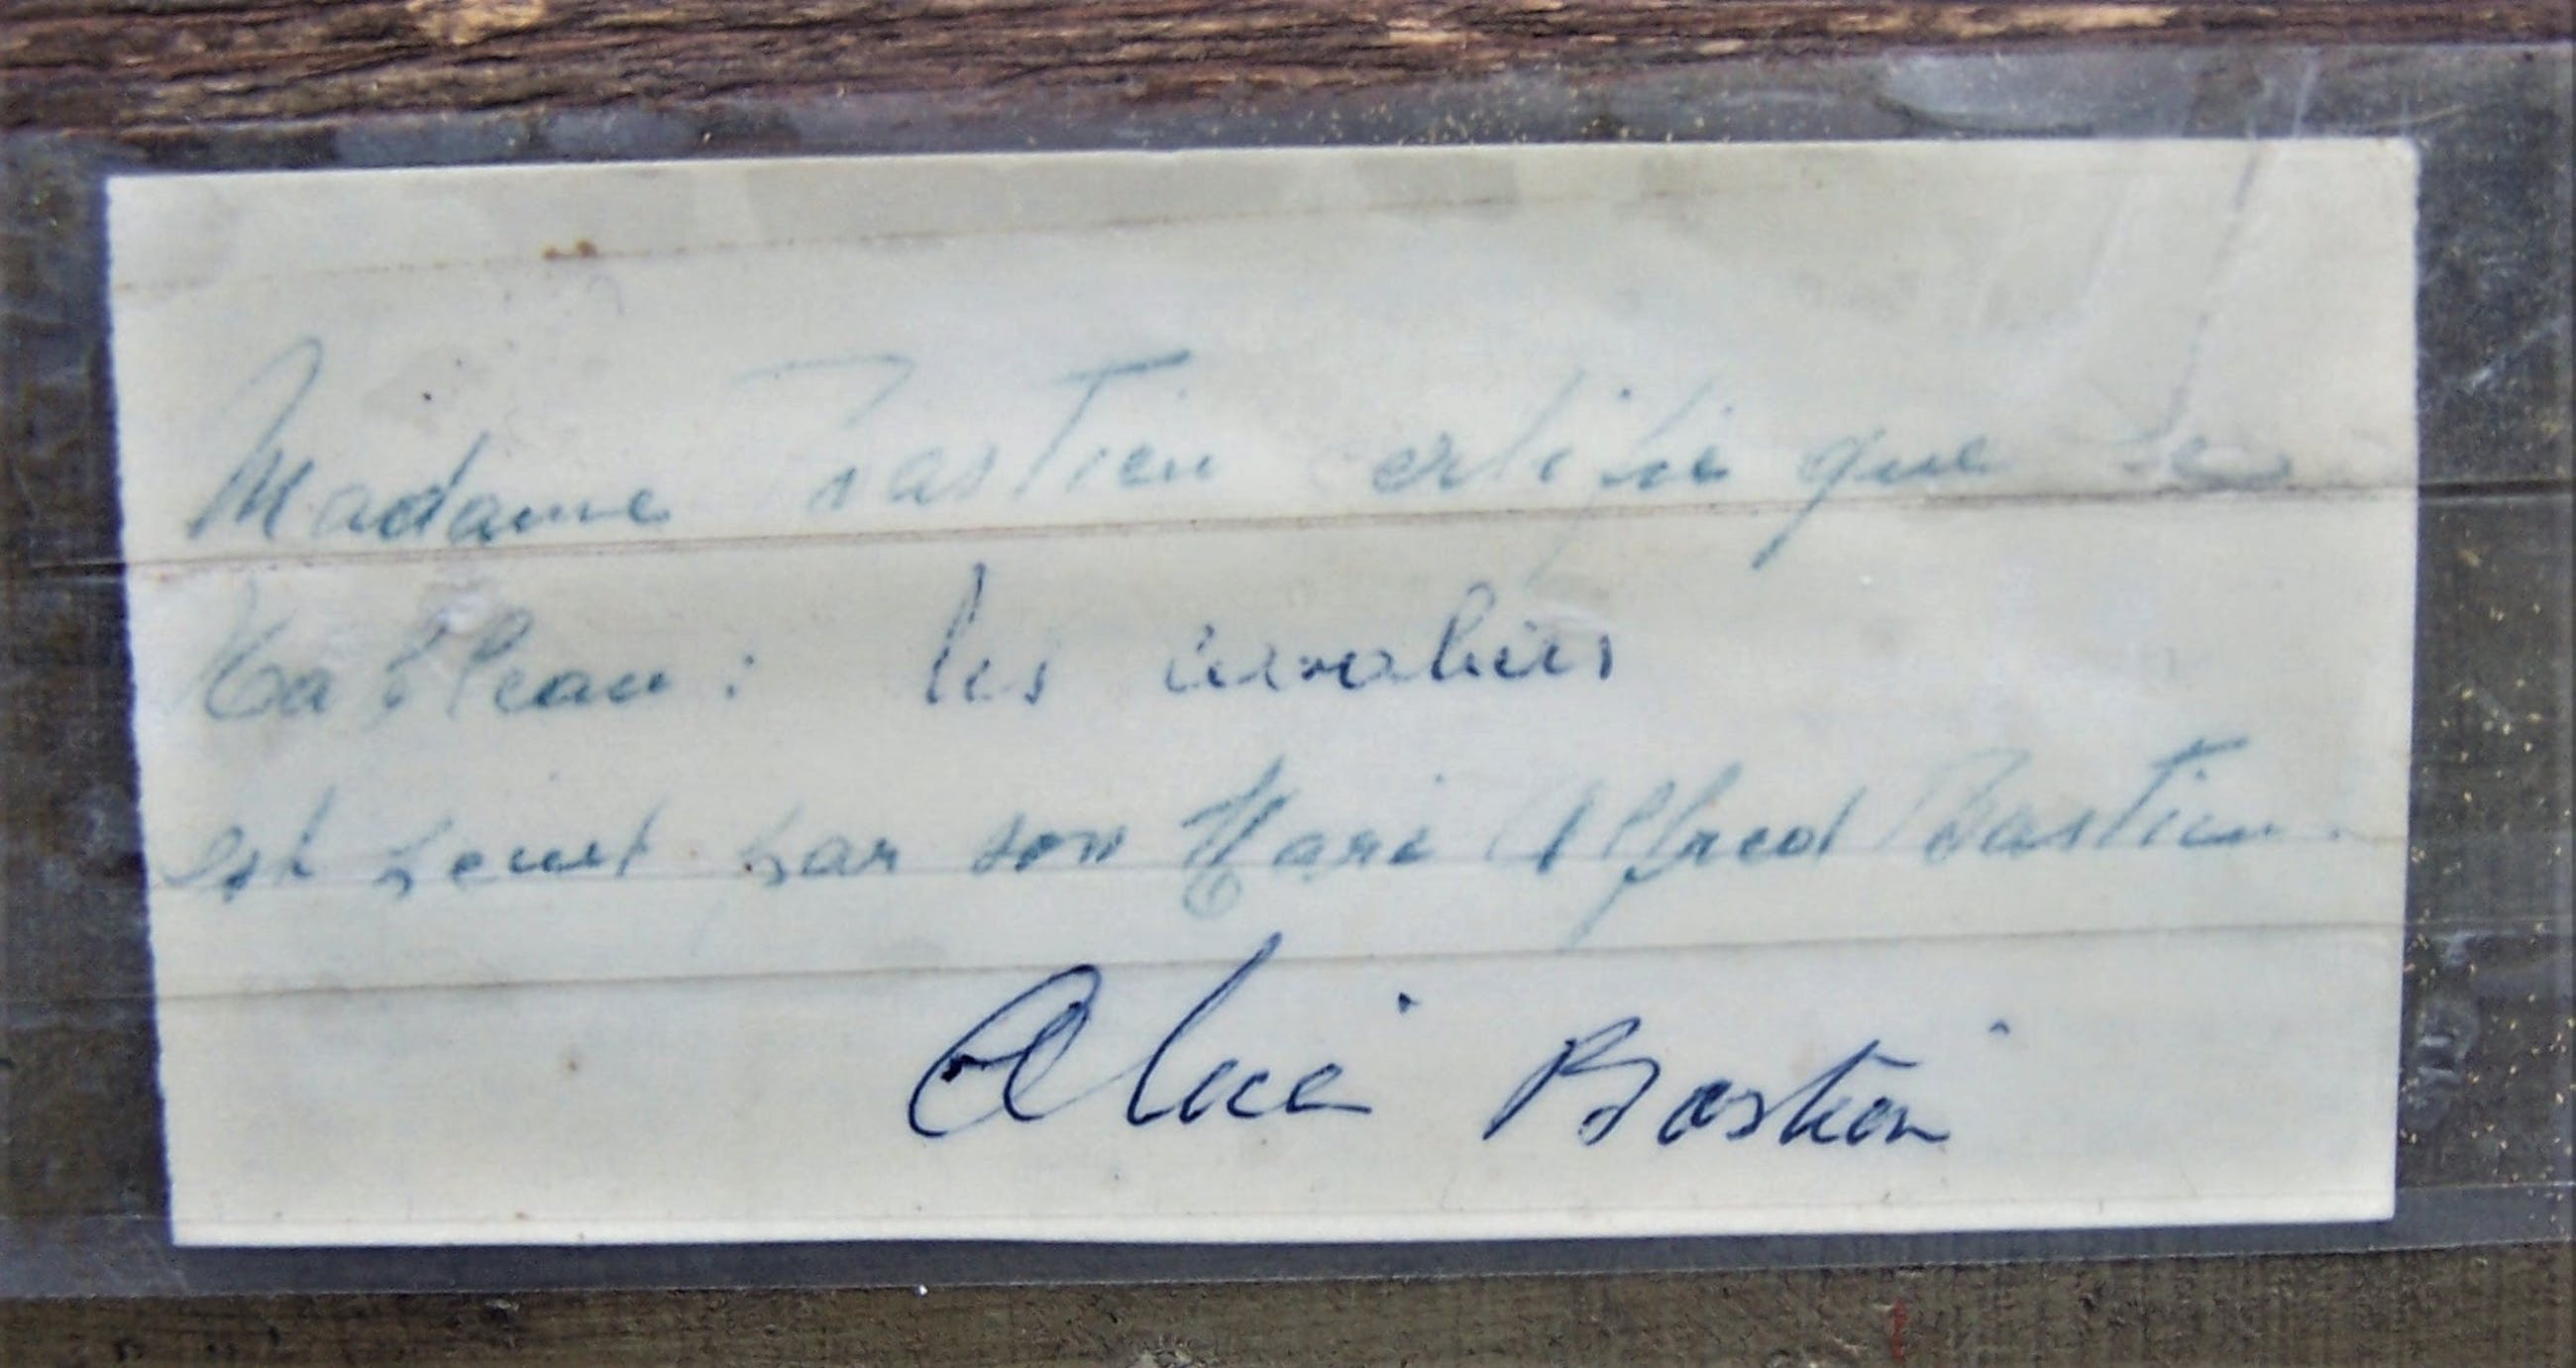 Madame Bastien certifie que le
Tableau : les cavaliers
est peint par son Mari Alfred Bastien.
Alice Bastien